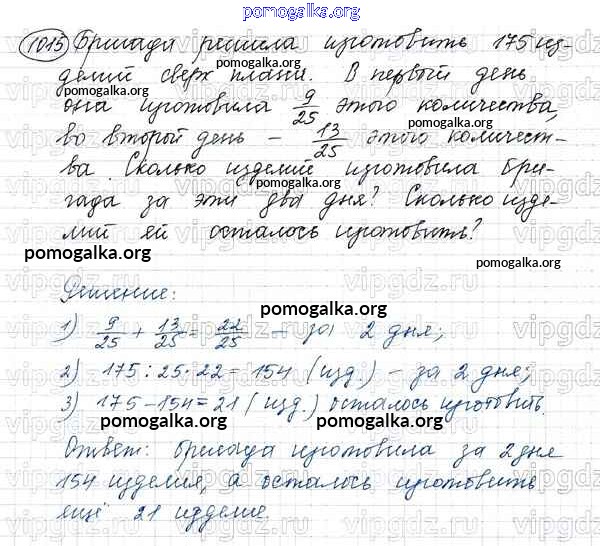 pomogalka.org
1015 Бригада решила изготовить 175 из-
делий сверх плана. В первый день
она изготовила 9/25 этого количества,
во второй день – 13/25 этого количест-
ва. Сколько изделий изготовила бри-
гада за эти два дня? Сколько изде-
лий ей осталось изготовить?
pomogalka.org
pomogalka.org
pomogalka.org
pomogalka.org
pomogalka.org
pomogalka.org
Решение:
pomogalka.org
1) 9/25 + 13/25 = 22/25 – за 2 дня;
2) 175 : 25 · 22 = 154 (изд.) – за 2 дня;
3) 175 – 154 = 21 (изд.) осталось изготовить.
pomogalka.org
pomogalka.org
Ответ: бригада изготовила за 2 дня
154 изделия, а осталось изготовить
ещё 21 изделие.
pomogalka.org
pomogalka.org
vipgdz.ru